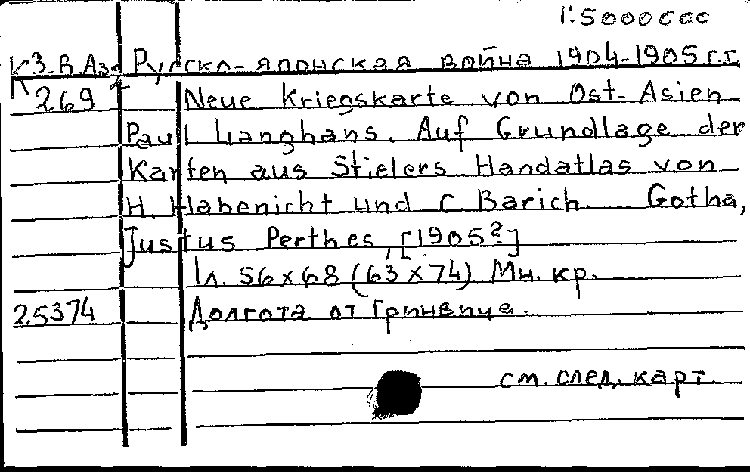 1:5000000
К3.В.Аз Русско-японская война 1904-1905 г.г.
К 269 Neue Kriegskarte von Ost-Asien
Paul Langhans. Auf Grundlage der
Karten aus Stielers Handatlas von
H Habenicht und C Barich Gotha,
Justus Perthes, [1905?]
1л. 56×68 (63×74) Мн. кр.
25374 Долгота от Гринвича.
см. след. карт.